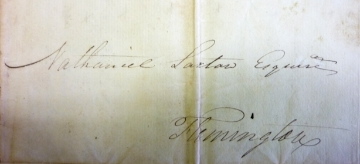 Nathaniel Saxton Esquire
Flemington